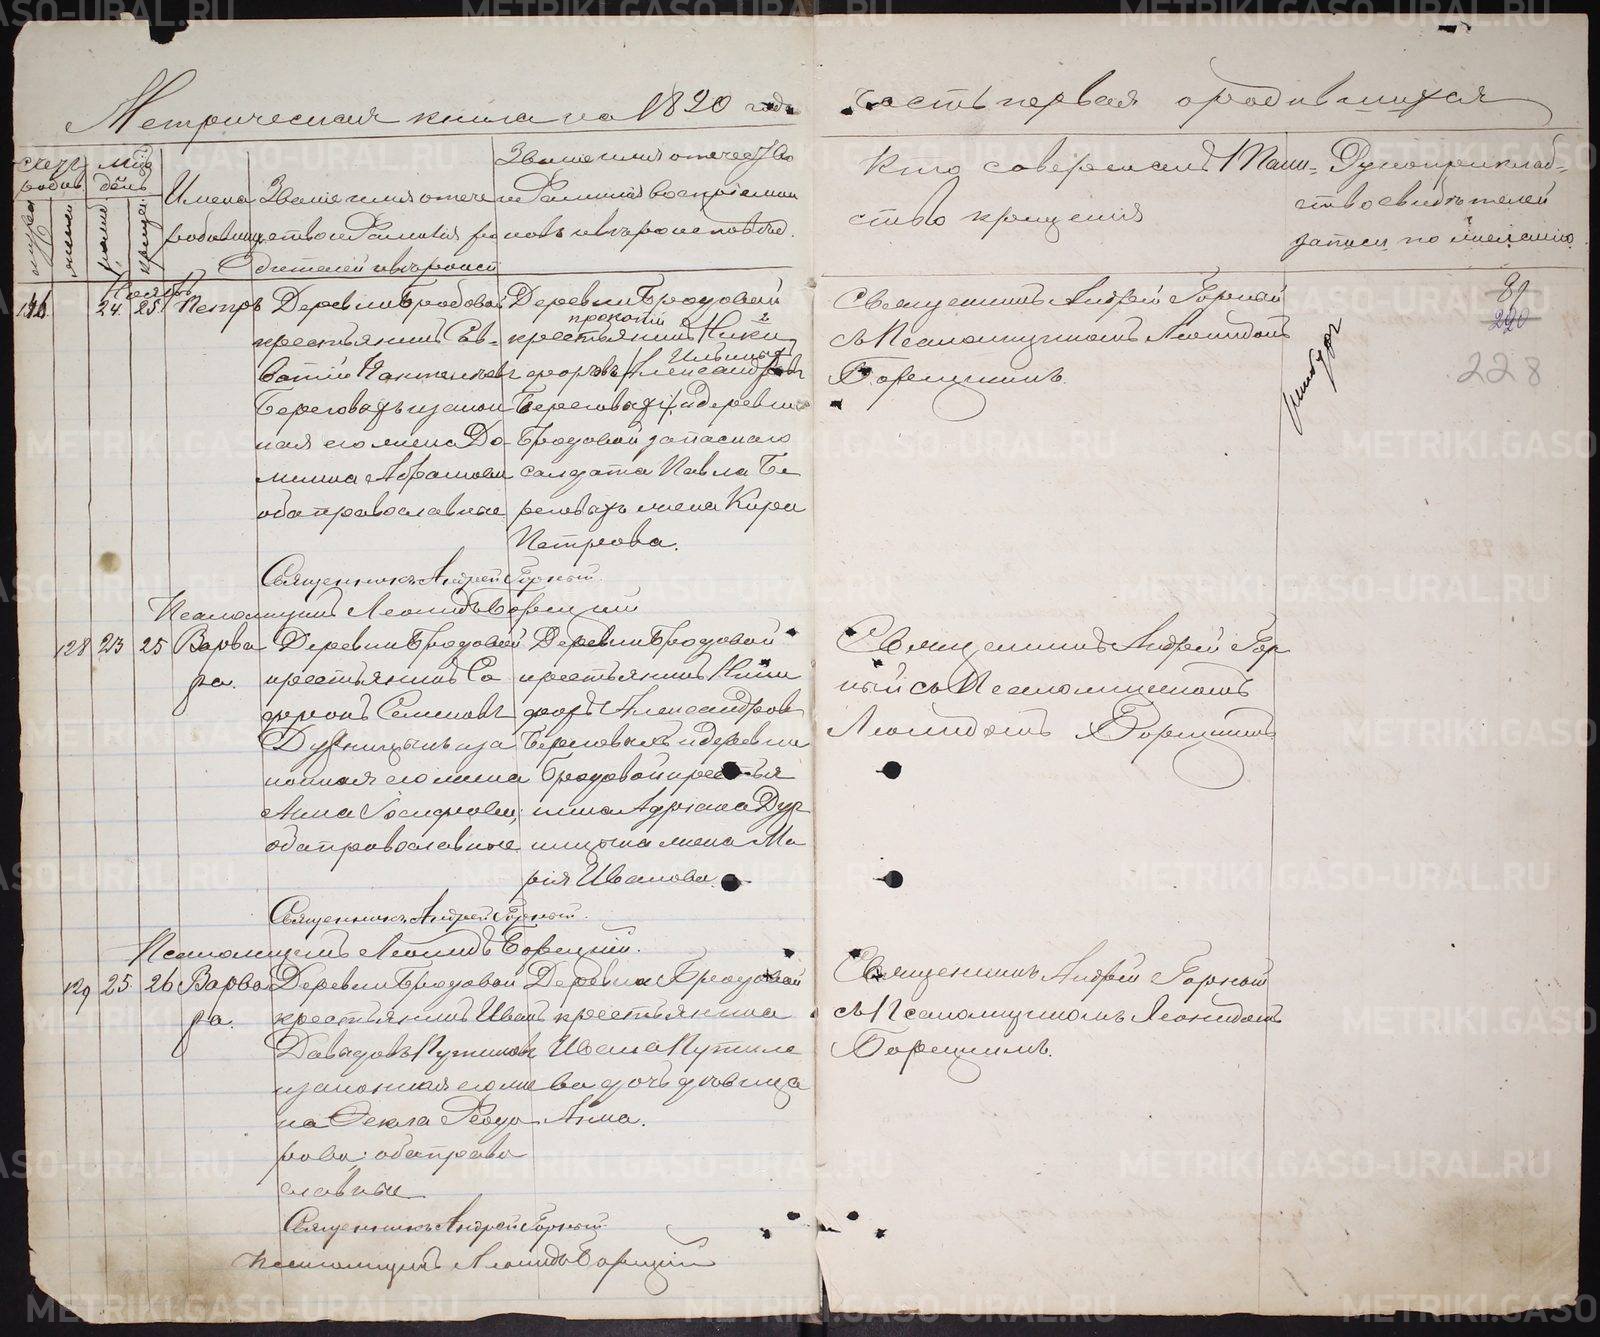 Метрическая книга на 1890 годъ
часть первая о родившихся
Счетъ родив.
Мѣс. и день
мужска
женска
рожд.
крещ.
Имена родивших
Званіе имя отече
ство и Фамилія ро
дителей и вѣроисп
Званіе имя отечество
и Фамилія воспріемни
ковъ и вѣроисповѣд.
Кто совершалъ Таин=
ство крещенія
Рукоприклад=
ство свидѣтелей
записи по желанію
Ноябрь
24. 25 Петръ
Деревни Бродовой
крестьянинъ Ев=
Береговыхъ и закон
ная его жена До
мника Абрамова
оба православные
Деревни Бродовой
крестьянинъ Ники
форъ Александровъ
Береговыхъ и деревни
Бродовой запаснаго
солдата Павла Бе
реговыхъ жена Кира
Петрова.
Священникъ Андрей Горный
съ Псаломщикомъ Леонидомъ
Борецкимъ.
81
220
228
Священникъ Андрей Горный
Псаломщикъ Леонидъ Борецкій
128 23 25 Варва
ра.
Деревни Бродовой
крестьянинъ Со
фронъ Семеновъ
нная его жена
Анна Іосифова,
оба православные
Деревни Бродовой
крестьянинъ Ники
форъ Александров
Береговыхъ и деревни
Бродовой крестья
нина Адріана Дур
ницына жена Ма
рія Иванова.
Священникъ Андрей Гор
ный съ Псаломщикомъ
Леонидомъ Борецкимъ
Священникъ Андрей Горный
Псаломщикъ Леонидъ Борецкій.
129 25 26 Варва
ра.
Деревни Бродовой
крестьянинъ Иванъ
Давыдовъ Путиловъ
и законная его же
на Фекла Феодо
рова: оба право
славные
Деревни Бродовой
крестьянина
Ивана Путило
ва дочь девица
Анна.
Священникъ Андрей Горный
съ Псаломщикомъ Леонидомъ
Борецкимъ.
Священникъ Андрей Горный
Псаломщикъ Леонидъ Борецкій
METRIKI.GASO-URAL.RU